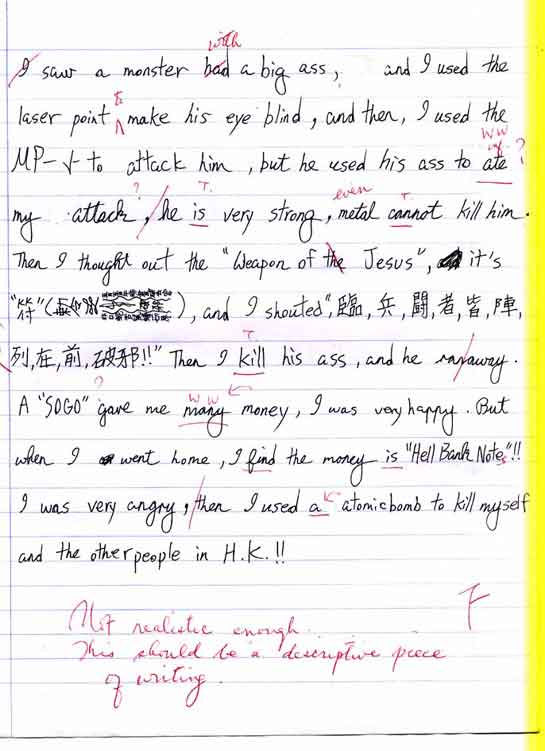 with
I saw a monster had a big ass, and I used the
to
laser point make his eye blind, and then, I used the
WW
MP-5 to attack him, but he used his ass to ate ?
? T. even T.
my attack, he is very strong, metal cannot kill him.
Then I thought out the "Weapon of the Jesus", it's
"符"( ), and I shouted", 臨, 兵, 鬪, 者, 皆, 陣,
T.
列, 在, 前, 破邪!!" Then I kill his ass, and he ran away.
? WW
A "SOGO" gave me many money, I was very happy. But
when I went home, I find the money is "Hell Bank Notes"!!
I was very angry, then I used a atomic bomb to kill myself
and the other people in H.K.!!
F
Not realistic enough.
This should be a descriptive piece
of writing.